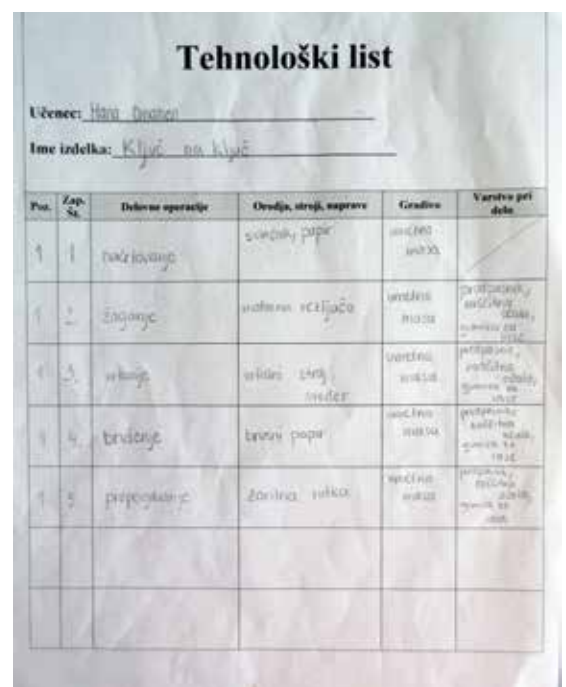 Tehnološki list
Učenec: Hana
Ime izdelka: Ključ na ključ
Poz. Zap. Št. Delovne operacije Orodja, stroji, naprave Gradivo Varstvo pri delu
1 1 načrtovanje svinčnik, papir umetna masa
1 2. žaganje vibracijska umetna masa predpasnik, zaščitna očala, gumica za lase
1 3. vrtanje vrtalni stroj, sveder umetna masa predpasnik, zaščitna očala, gumica za lase
1 4. brušenje brusni papir umetna masa predpasnik, zaščitna očala, gumica za lase
1 5. prepogibanje žarilna umetna masa predpasnik, zaščitna očala, gumica za lase